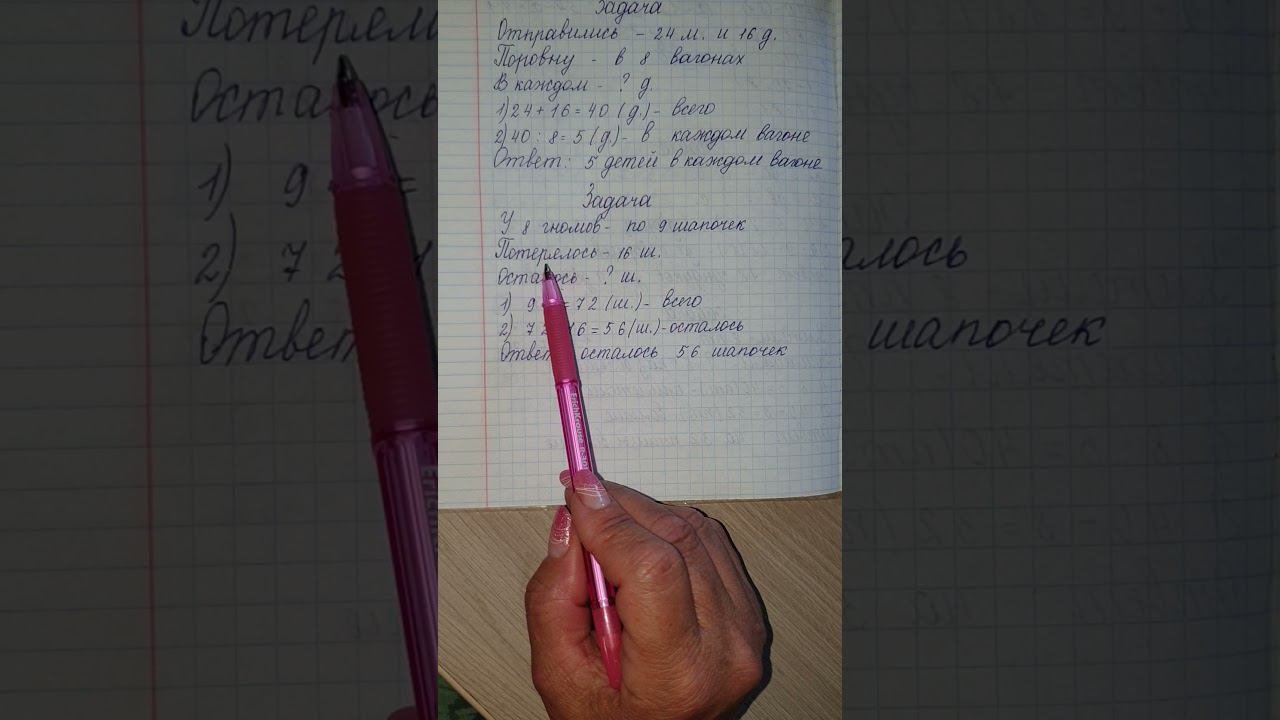 Задача
Отправились - 24 м. и 16 д.
Поровну - в 8 вагонах
В каждом - ? д.
1) 24 + 16 = 40 (д.) - всего
2) 40 : 8 = 5 (д) - в каждом вагоне
Ответ: 5 детей в каждом вагоне
Задача
У 8 гномов - по 9 шапочек
Потерялось - 16 ш.
Осталось - ? ш.
1) 9 = 72 (ш.) - всего
2) 72 16 = 56 (ш.) - осталось
Ответ осталось 56 шапочек
ErichKrause R-301